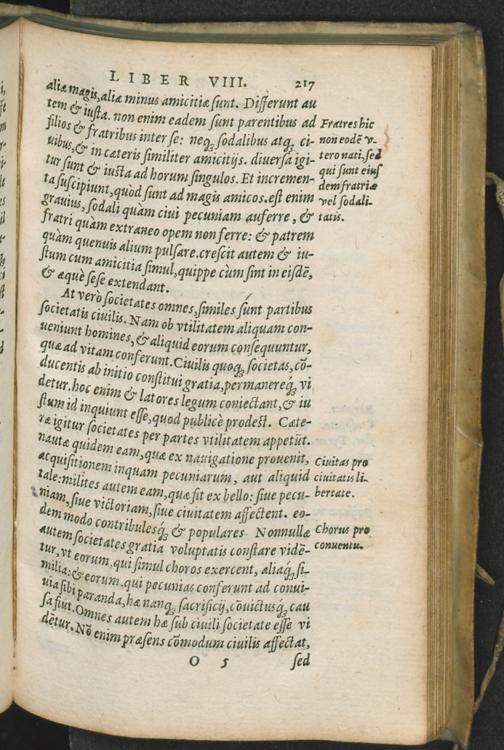 LIBER VIII. 217
aliæ magis, aliæ minus amicitiæ sunt. Differunt au
tem & iusta. non enim eadem sunt parentibus ad
filios & fratribus inter se: neq; sodalibus atq; ci-
uibus, & in cæteris similiter amicitijs. diuersa igi-
tur sunt & iusta ad horum singulos. Et incremen-
ta suscipiunt, quòd sunt ad magis amicos. est enim
grauius, sodali quàm ciui pecuniam auferre, &
fratri quàm extraneo opem non ferre: & patrem
quàm quenuis alium pulsare. crescit autem & iu-
stum cum amicitia simul, quippe cùm sint in eisdē,
& æquè sese extendant.
Fratres hic
non eodē v-
tero nati, sed
qui sunt eius
dem fratriæ
vel sodali-
tatis.
At verò societates omnes, similes sunt partibus
societatis ciuilis. Nam ob vtilitatem aliquam con-
ueniunt homines, & aliquid eorum consequuntur,
quæ ad vitam conferunt. Ciuilis quoq; societas, cō-
ducentis ab initio constitui gratia, permanereq; vi
detur. hoc enim & latores legum coniectant, & iu
stum id inquiunt esse, quod publicè prodest. Cæte-
ræ igitur societates per partes vtilitatem appetūt.
nautæ quidem eam, quæ ex nauigatione prouenit,
acquisitionem inquam pecuniarum, aut aliquid
tale: milites autem eam, quæ fit ex bello: siue pecu-
niam, siue victoriam, siue ciuitatem affectent. eo-
dem modo contribulesq́; & populares Nonnullæ
autem societates gratia voluptatis constare vidē-
tur, vt eorum, qui simul choros exercent, aliaq́; si-
milia: & eorum, qui pecunias conferunt ad conui-
uia sibi paranda, hæ nanq; sacrificij, cōuictusq́; cau
sa fiūt. Omnes autem hæ sub ciuili societate esse vi
dētur. Nō enim præsens cōmodum ciuilis affectat,
Ciuitas pro
ciuitatis li-
bertate.
Chorus pro
conuentu.
O 5 sed